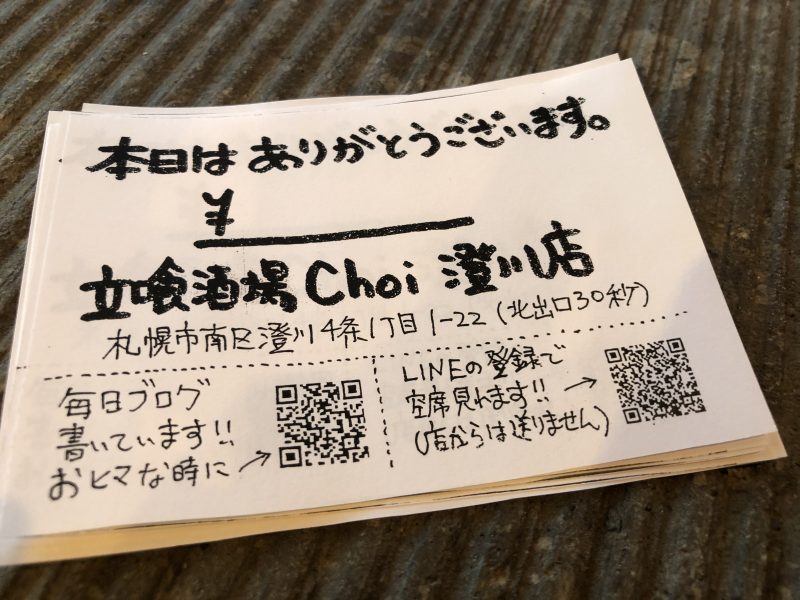 本日はありがとうございます。
¥
立喰酒場Choi 澄川店
札幌市南区澄川4条1丁目1-22(北出口30秒)
毎日ブログ
書いています!!
おヒマな時に→
LINEの登録で
空席見れます!!→
(店からは送りません)